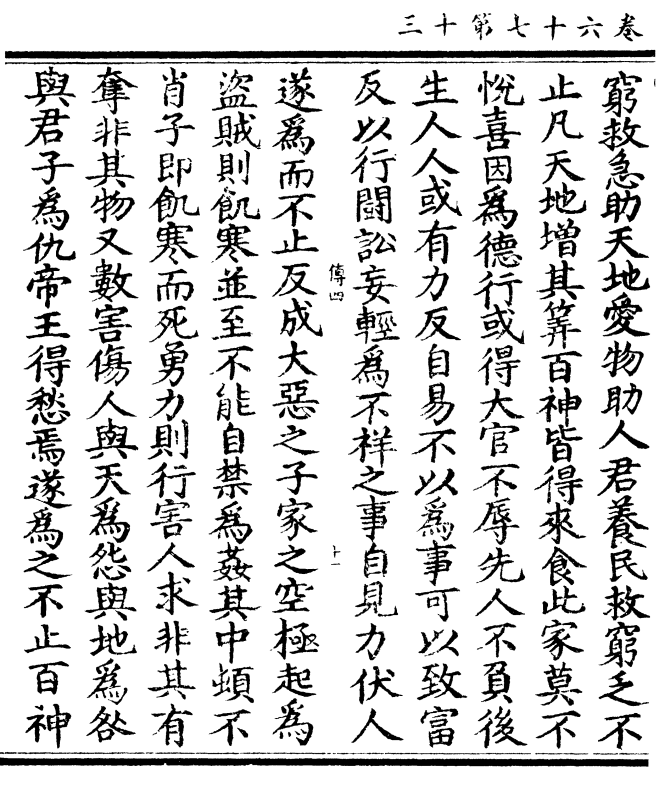 卷六十七第十三
窮救急助天地愛物助人君養民救窮乏不
止凡天地增其筭百神皆得來食此家莫不
恱喜因爲德行或得大官不辱先人不負後
生人人或有力反自易不以爲事可以致富
反以行鬪訟妄輕爲不祥之事自見力伏人
傅四
十一
遂爲而不止反成大惡之子家之空極起爲
盜賊則飢寒並至不能自禁爲姦其中頓不
肖子即飢寒而死勇力則行害人求非其有
奪非其物又數害傷人與天爲怨與地爲咎
與君子爲仇帝王得愁焉遂爲之不止百神